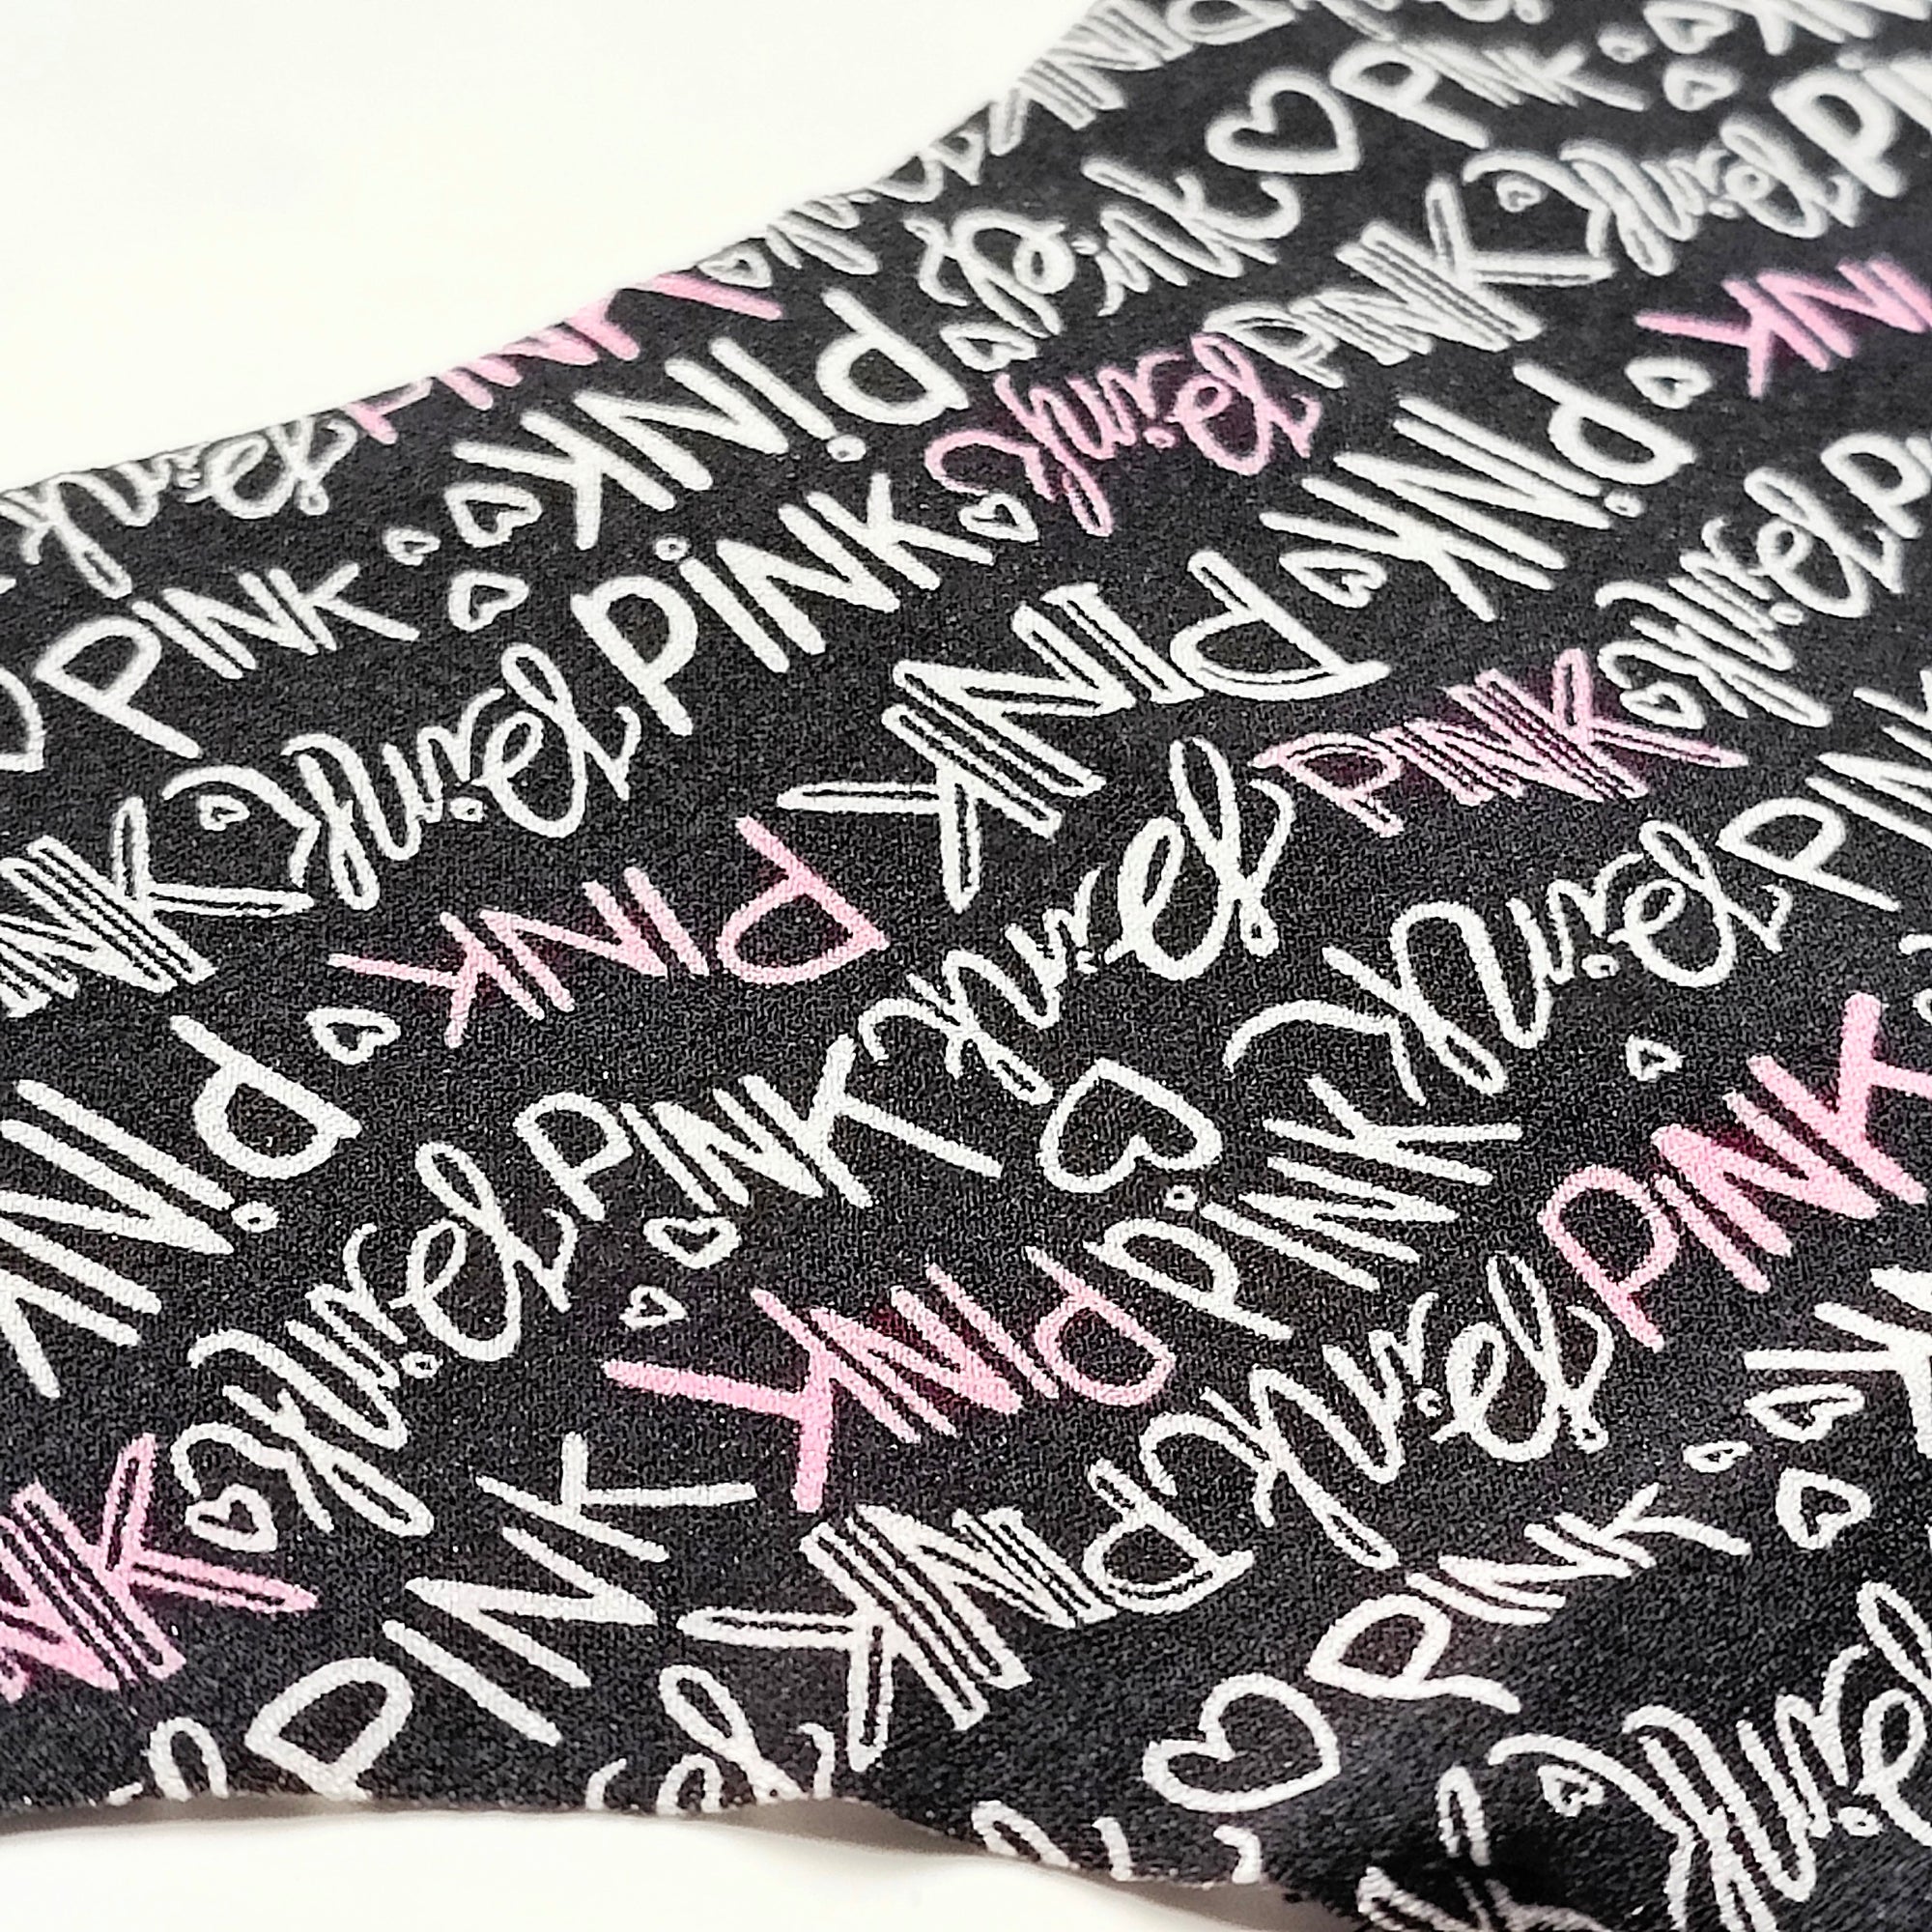 PINK
PINK
pink
PINK
Pink
PINK
PINK
Pink
PINK
PiNK
PINK
Pink
PiNK
PiNK
Pink
PINK
PINK
PINK
Pink
Pink
PINK
Pink
PINK
Pink
PINK
PINK
Pink
PINK
PiNK
PINK
Pink
PINK
Pink
PINK
PINK
Pink